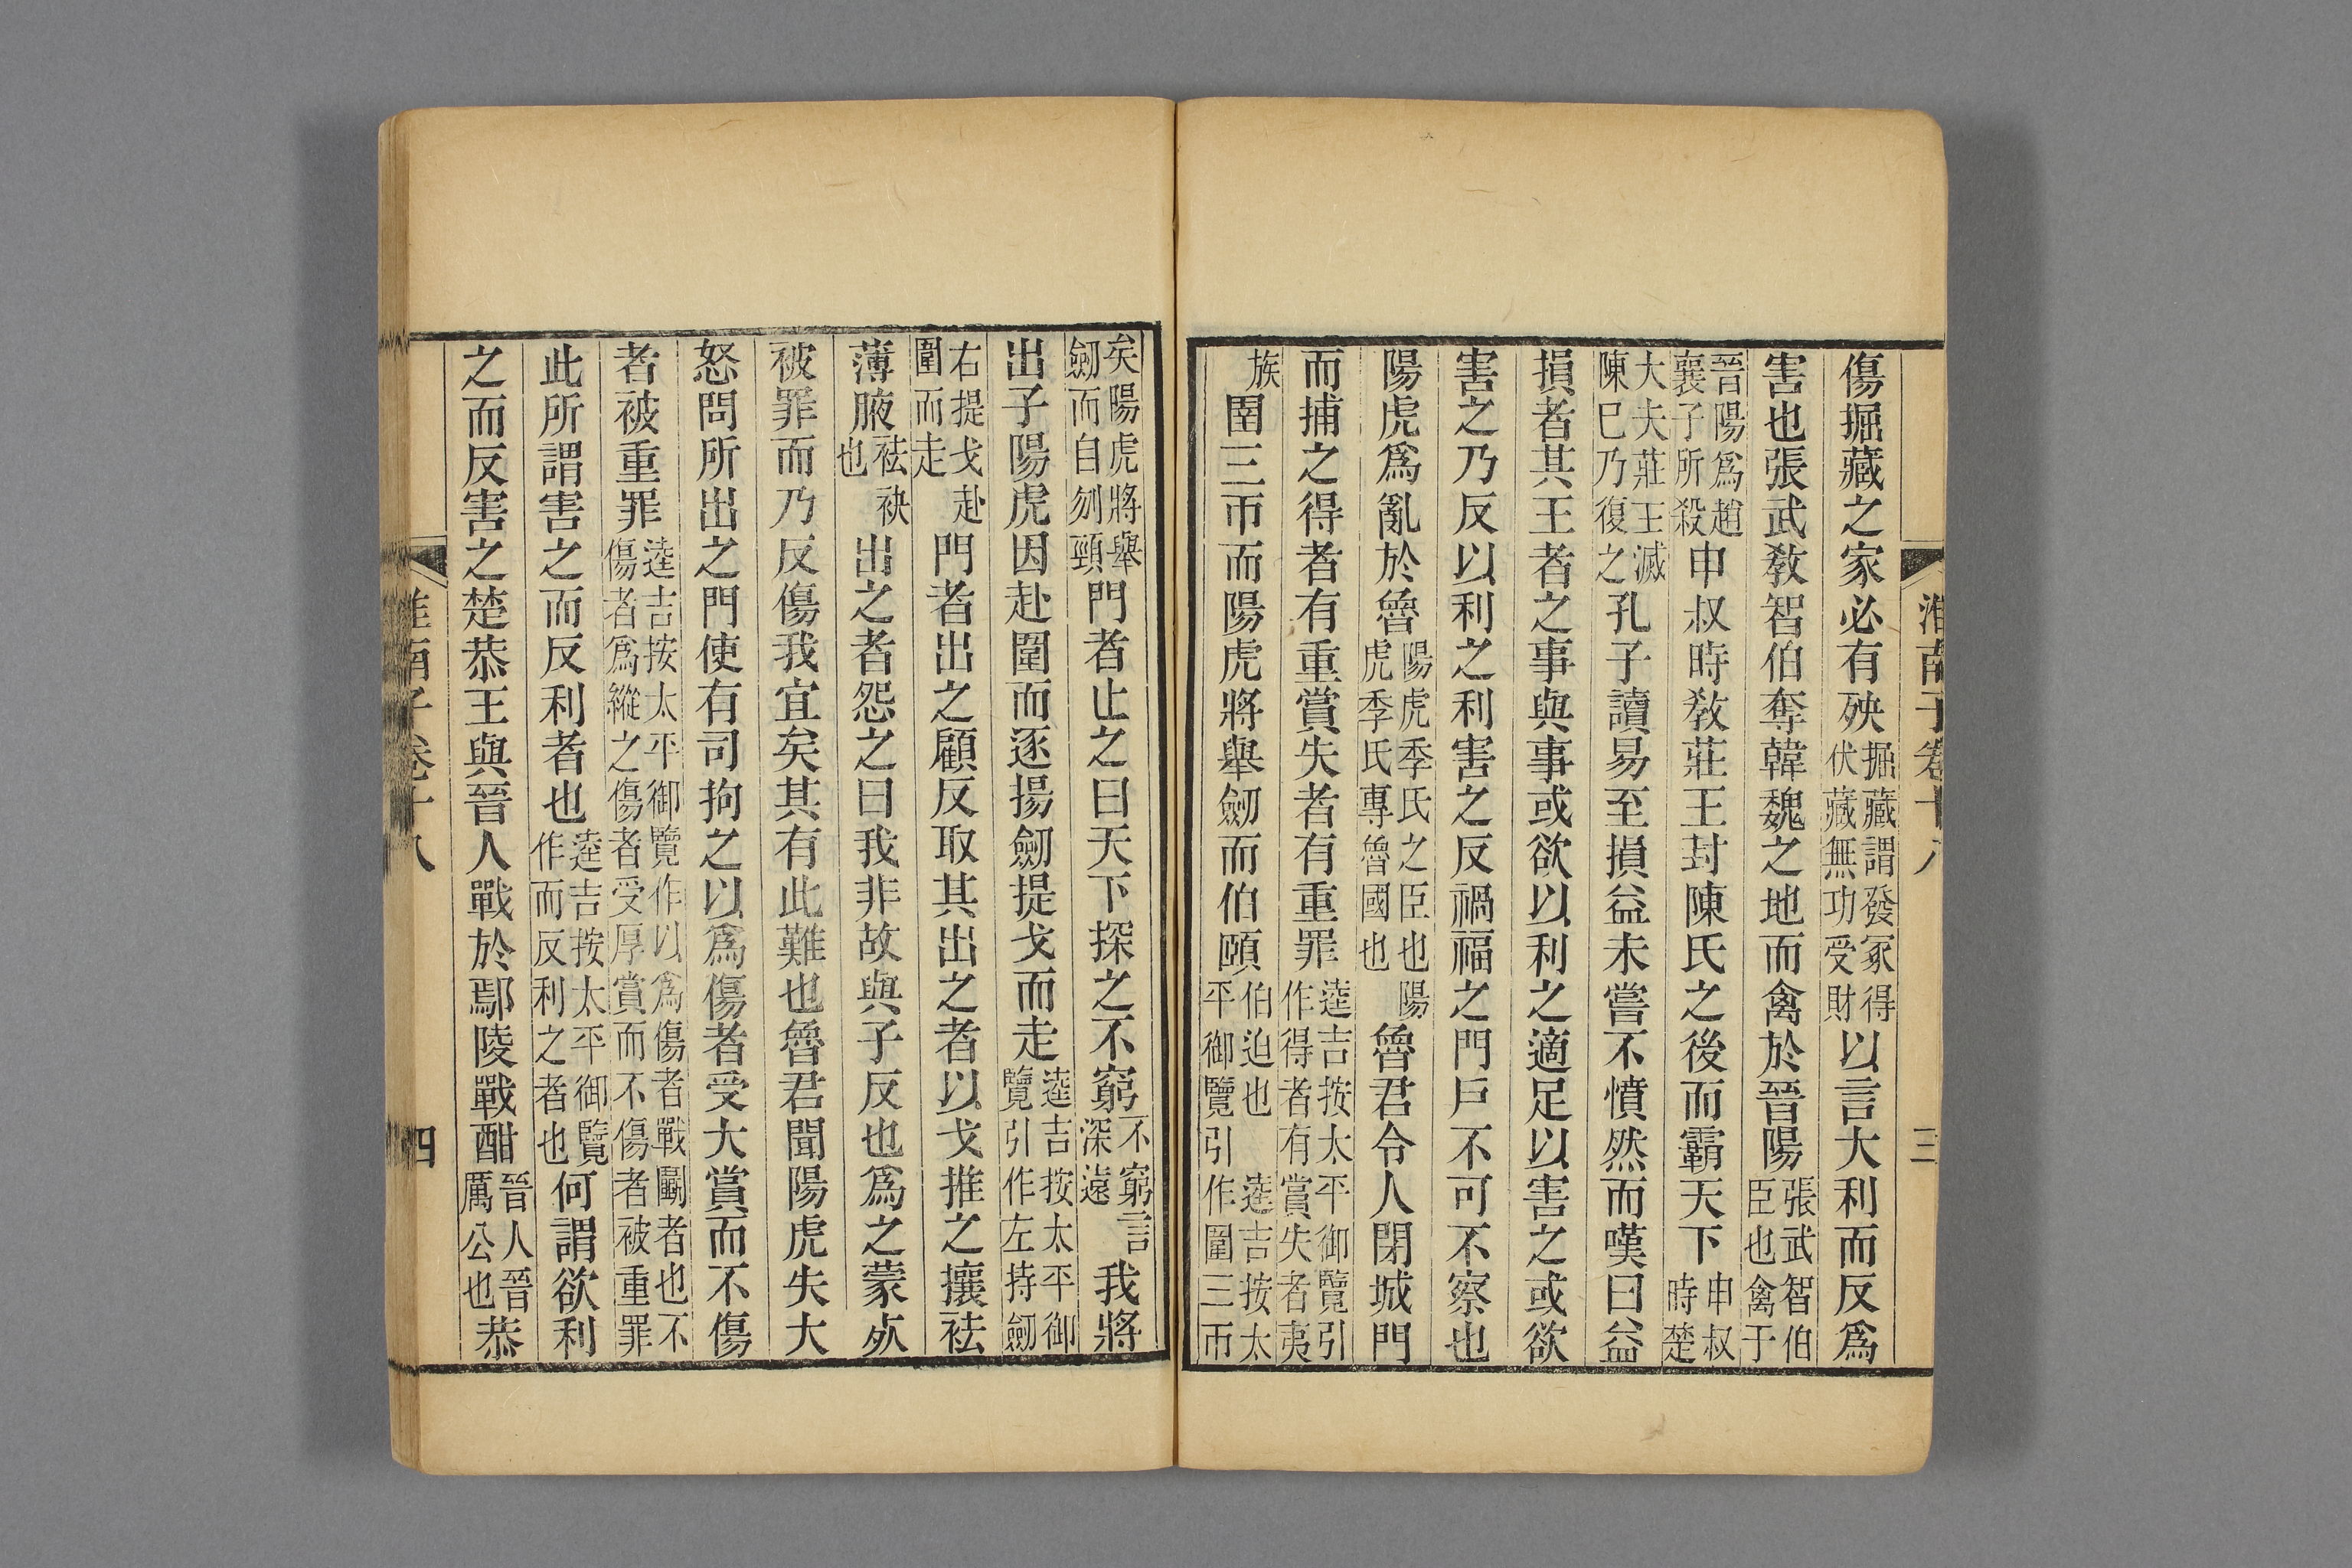 淮南子卷十八 三
傷掘藏之家必有殃掘藏謂發冢得伏藏無功受財以言大利而反爲
害也張武敎智伯奪韓魏之地而禽於晉陽張武智伯臣也禽于
晉陽爲趙襄子所殺申叔時敎莊王封陳氏之後而霸天下申叔時楚
大夫莊王滅陳巳乃復之孔子讀易至損益未嘗不憤然而嘆曰益
損者其王者之事與事或欲以利之適足以害之或欲
害之乃反以利之利害之反禍福之門戶不可不察也
陽虎爲亂於魯陽虎季氏之臣也陽虎季氏專魯國也魯君令人閉城門
而捕之得者有重賞失者有重罪逵吉按太平御覽引作得者有賞失者夷
族圉三帀而陽虎將舉劒而伯頤伯迫也 逵吉按太平御覽引作圍三帀
矣陽虎將舉劒而自刎頸門者止之曰天下探之不窮不窮言深遠我將
出子陽虎因赴圍而逐揚劒提戈而走逵吉按太平御覽引作左持劒
右提戈赴圍而走門者出之顧反取其出之者以戈推之攘袪
薄腋袪袂也出之者怨之曰我非故與子反也爲之蒙㱙
被罪而乃反傷我宜矣其有此難也魯君聞陽虎失大
怒問所出之門使有司拘之以爲傷者受大賞而不傷
者被重罪逵吉按太平御覽作以爲傷者戰鬭者也不傷者爲縱之傷者受厚賞而不傷者被重罪
此所謂害之而反利者也逵吉按太平御覽作而反利之者也何謂欲利
之而反害之楚恭王與晉人戰於鄢陵戰酣晉人晉厲公也恭
淮南子卷十八 四